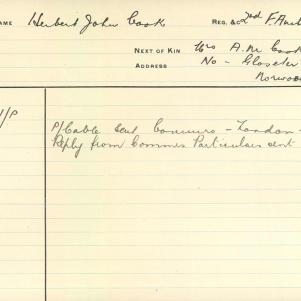 NAME Herbert John Cook REG. &C. 2nd F. Amb
NEXT OF KIN Mrs A. M. Cook
ADDRESS No - Gloster
Norwood
1/P P/Cable sent Commrs - London -
Reply from Commrs Particulars sent